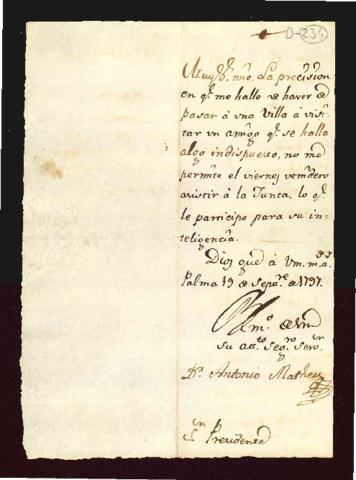 D-234
Muy Sr. mio. La precision
en q.e me hallo de haver de
pasar à una Villa à visi-
tar un amigo q.e se halla
algo indispuesto, no me
permite el viernes venidero
asistir à la Junta, lo q.e
le participo para su in-
teligencia.
Dios gue. à Vm. m. a.s
Palma 19 de Sepre. de 1797.
BLmo. de Vm
su atto. Segro. Servr.
Dn. Antonio Matheu
Sr. Presidente